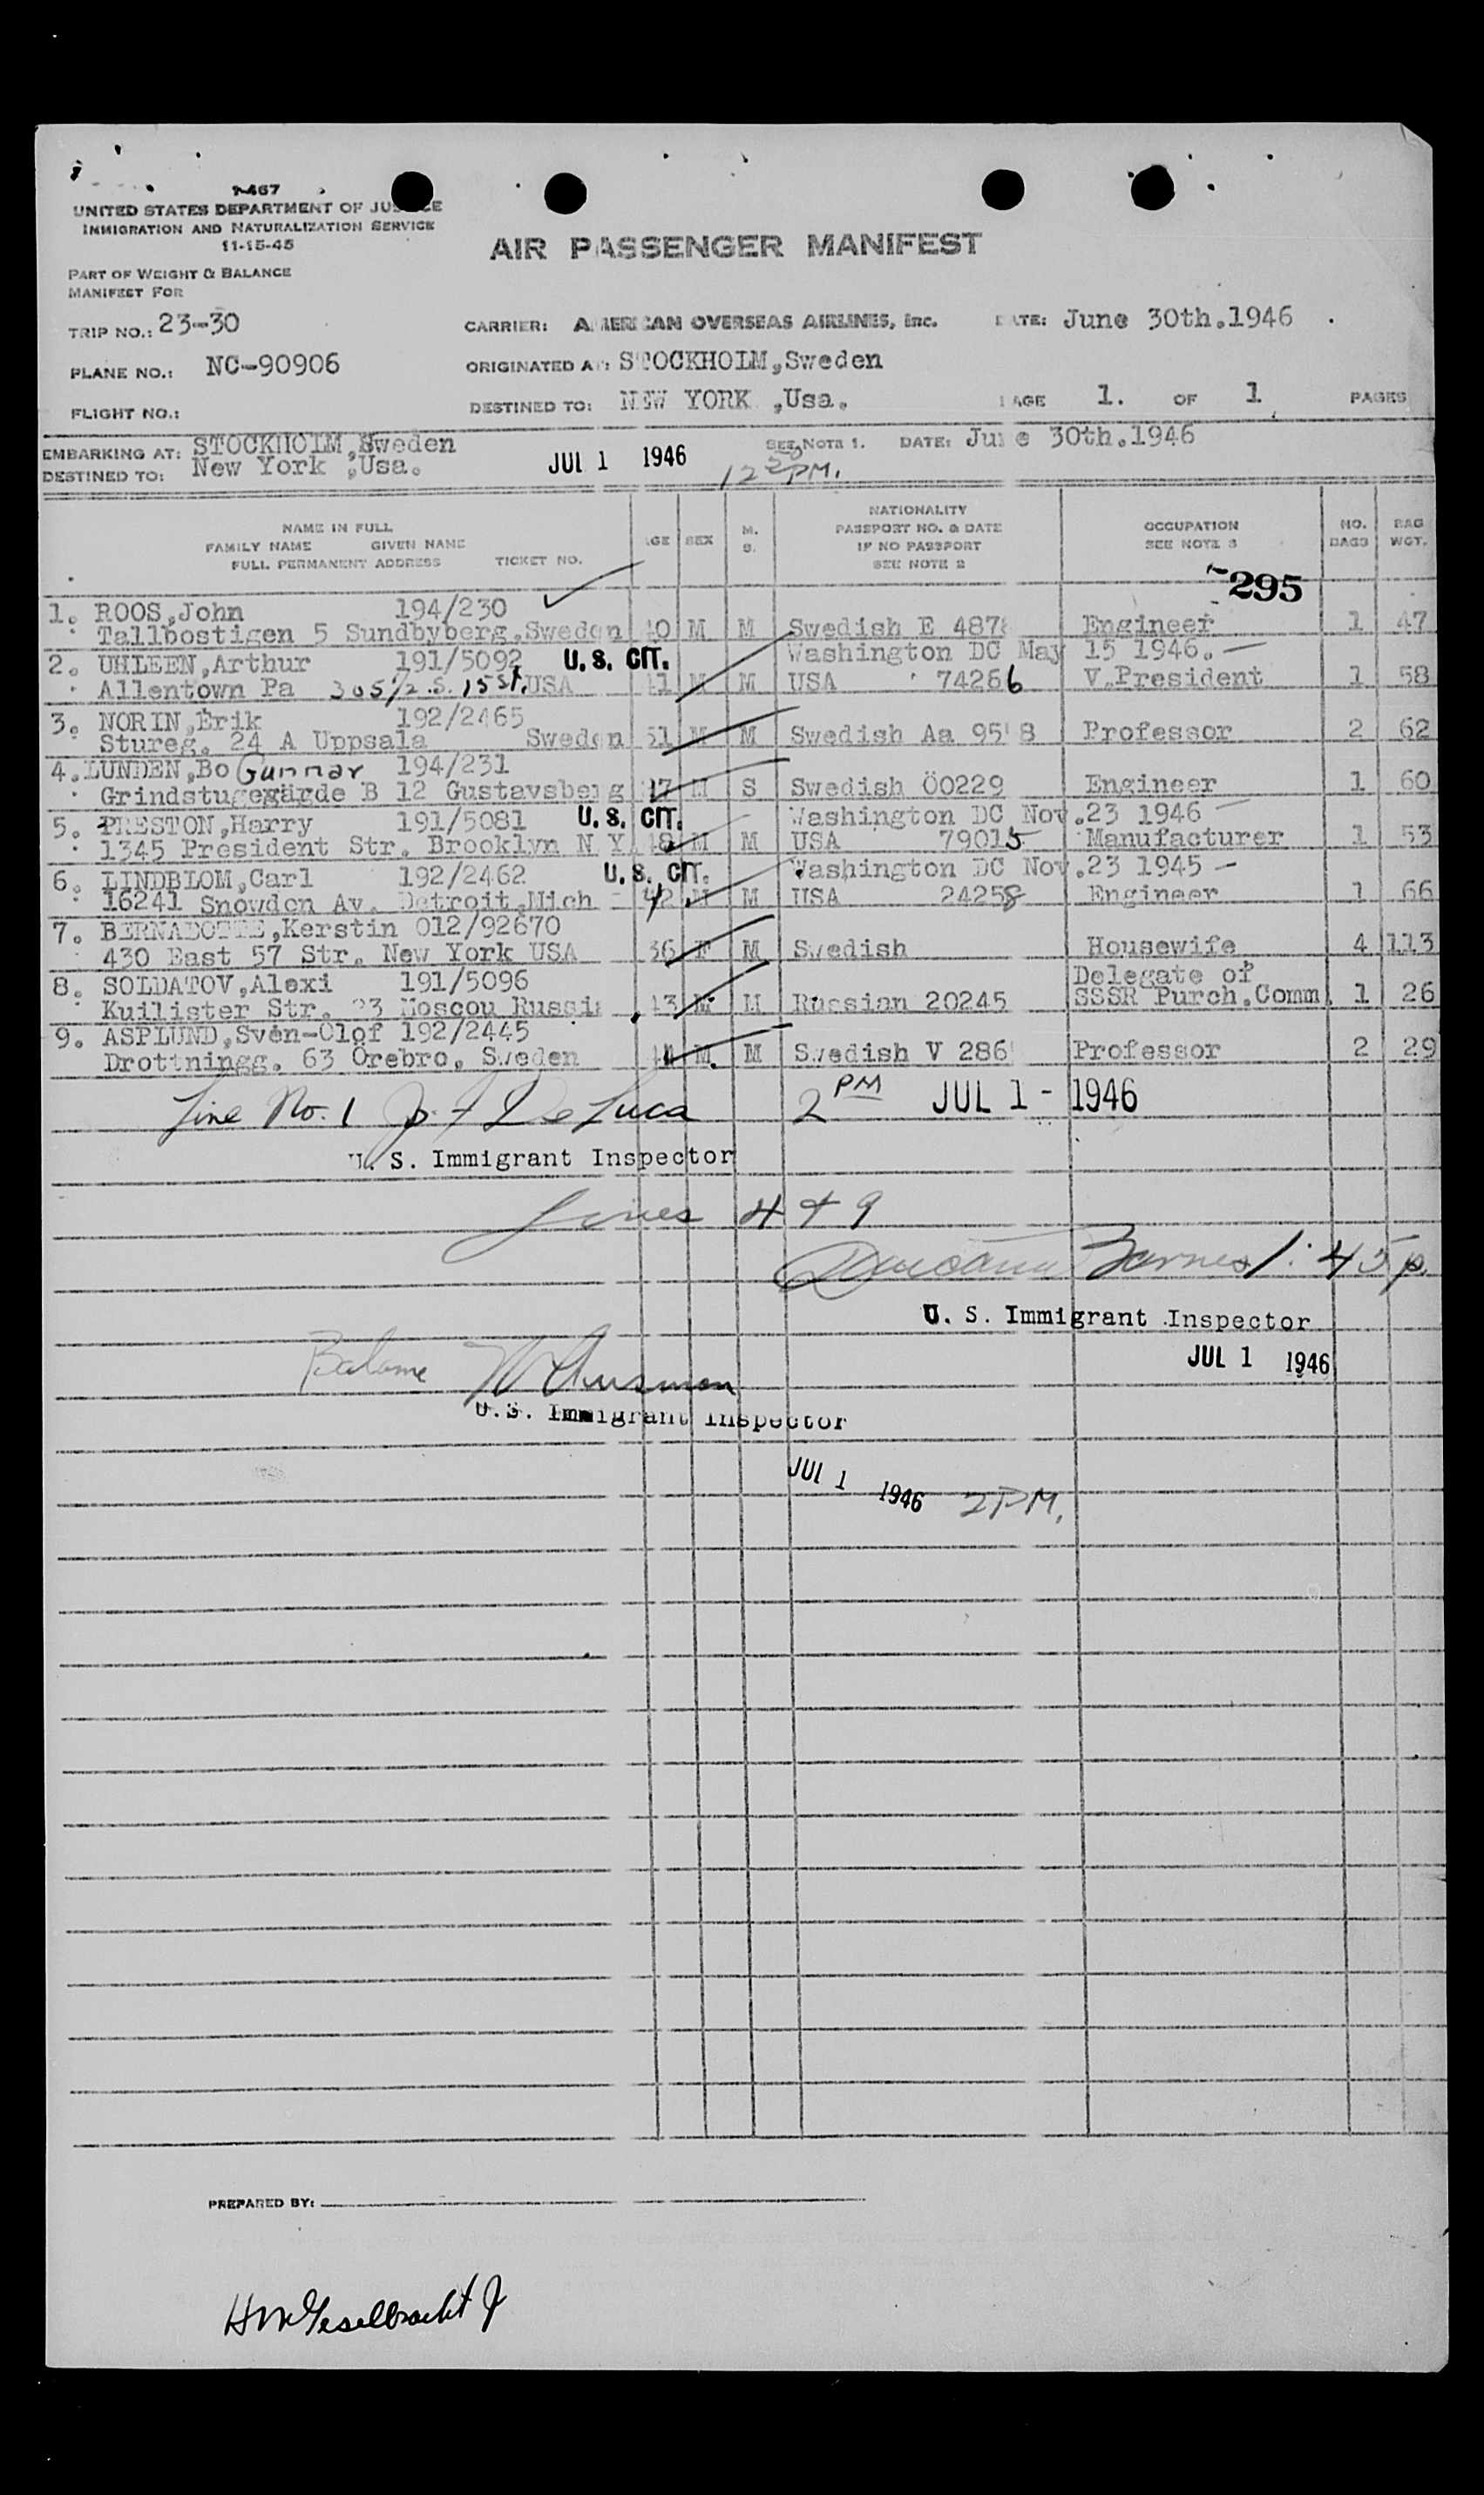 1-467
UNITED STATES DEPARTMENT OF JUSTICE
IMMIGRATION AND NATURALIZATION SERVICE
11-15-45
AIR PASSENGER MANIFEST
PART OF WEIGHT & BALANCE
MANIFEST FOR
TRIP NO.: 23-30 CARRIER: AMERICAN OVERSEAS AIRLINES, Inc. DATE: June 30th.1946
PLANE NO.: NC-90906 ORIGINATED AT: STOCKHOLM,Sweden
FLIGHT NO.: DESTINED TO: NEW YORK ,Usa. PAGE 1. OF 1 PAGES
EMBARKING AT: STOCKHOLM,Sweden SEE NOTE 1. DATE: June 30th.1946
DESTINED TO: New York ,Usa. JUL 1 1946 12 PM.
NAME IN FULL
FAMILY NAME GIVEN NAME
FULL PERMANENT ADDRESS TICKET NO. AGE SEX M. S. NATIONALITY PASSPORT NO. & DATE IF NO PASSPORT SEE NOTE 2 OCCUPATION SEE NOTE 3 NO. BAGS BAG WGT.
295
1. ROOS,John 194/230
Tallbostigen 5 Sundbyberg,Sweden M M Swedish E 487 Engineer 1 47
2. UHLEEN,Arthur 191/5092 U. S. CIT. Washington DC May 15 1946.
Allentown Pa 305 1/2 S. 15 St. USA 41 M M USA 74266 V.President 1 58
3. NORIN,Erik 192/2465
Stureg. 24 A Uppsala Sweden 51 M M Swedish Aa 95 8 Professor 2 62
4. LUNDEN,Bo Gunnar 194/231
Grindstugegärde B 12 Gustavsberg M S Swedish Ö0229 Engineer 1 60
5. PRESTON,Harry 191/5081 U. S. CIT. Washington DC Nov.23 1946
1345 President Str. Brooklyn N Y 48 M M USA 79015 Manufacturer 1 53
6. LINDBLOM,Carl 192/2462 U. S. CIT. Washington DC Nov.23 1945
16241 Snowden Av. Detroit,Mich 42 M M USA 24258 Engineer 1 66
7. BERNADOTTE,Kerstin 012/92670
430 East 57 Str. New York USA 36 F M Swedish Housewife 4 113
8. SOLDATOV,Alexi 191/5096 Delegate of
Kuilister Str. 23 Moscou Russia 43 M M Russian 20245 SSSR Purch.Comm. 1 26
9. ASPLUND,Sven-Olof 192/2445
Drottningg. 63 Örebro, Sweden 44 M M Swedish V 286 Professor 2 29
Line No. 1 De Luca 2 PM JUL 1 - 1946
U. S. Immigrant Inspector
Lines 4 & 9
Barnes 1:45 p.
U. S. Immigrant Inspector
JUL 1 1946
Balance
U.S. Immigrant Inspector
JUL 1 1946 2 PM.
PREPARED BY: